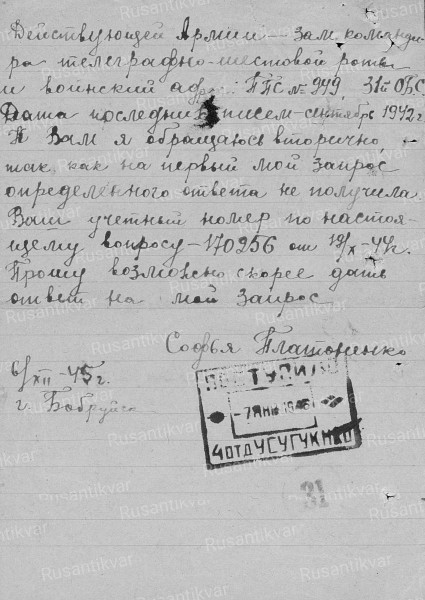 Действующей Армии — зам. команди-
ра телеграфно-шестовой роты
и воинский адрес: ППС № 949, 31й ОБС.
Дата последних писем - сентябрь 1942 г
К Вам я обращаюсь вторично,
так как на первый мой запрос
определенного ответа не получила.
Ваш учетный номер по настоя-
щему вопросу - 170256 от 19/X - 44 г.
Прошу возможно скорее дать
ответ на мой запрос
Софья Платоненко
6/XII - 45 г.
г. Бобруйск
ПОСТУПИЛО
- 7 ЯНВ 1946
4 ОТД УСУГУК НКО
31
Rusantikvar